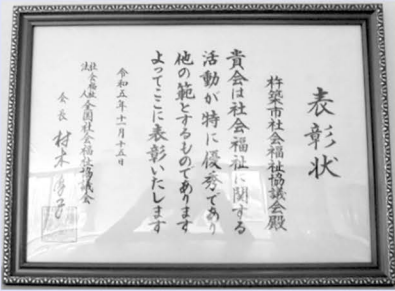 表彰状
杵築市社会福祉協議会殿
貴会は社会福祉に関する
活動が特に優秀であり
他の範とするものであります
よってここに表彰いたします
令和五年十一月十五日
社会福祉法人全国社会福祉協議会
会長 村木厚子